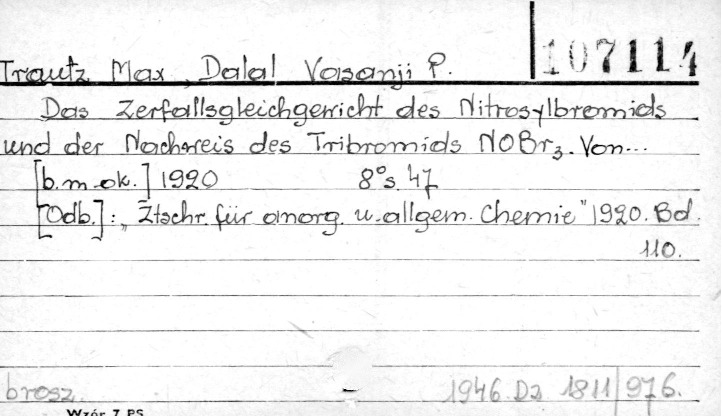 107114
Trautz Max, Dalal Vasanji P.
Das Zerfallsgleichgewicht des Nitrosylbromids
und der Nachweis des Tribromids NOBr₃. Von...
[b.m.ok.] 1920 8°s. 47
[Odb.]: „Ztschr. für anorg. u. allgem. Chemie" 1920. Bd.
110.
brosz. 1946 Dz 1811/976.
Wzór 7 PS